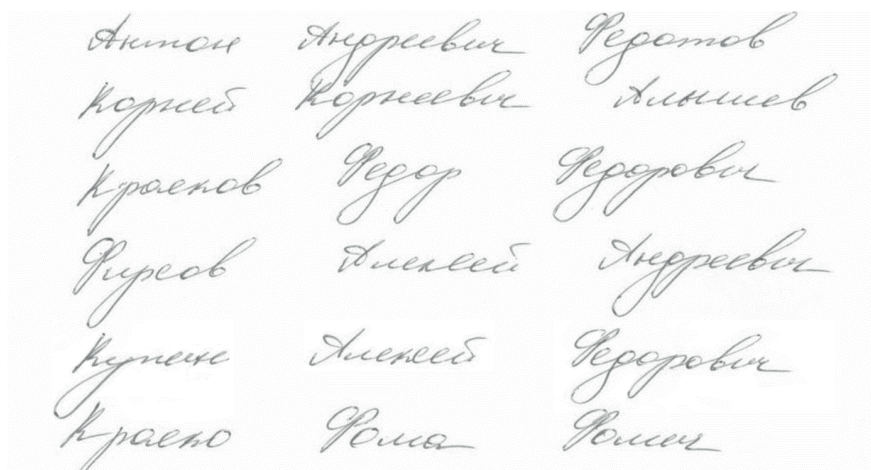 Антон Андреевич Федотов
Корней Корнеевич Алышев
Краснов Федор Федорович
Фирсов Алексей Андреевич
Купчин Алексей Федорович
Краско Фома Фомич